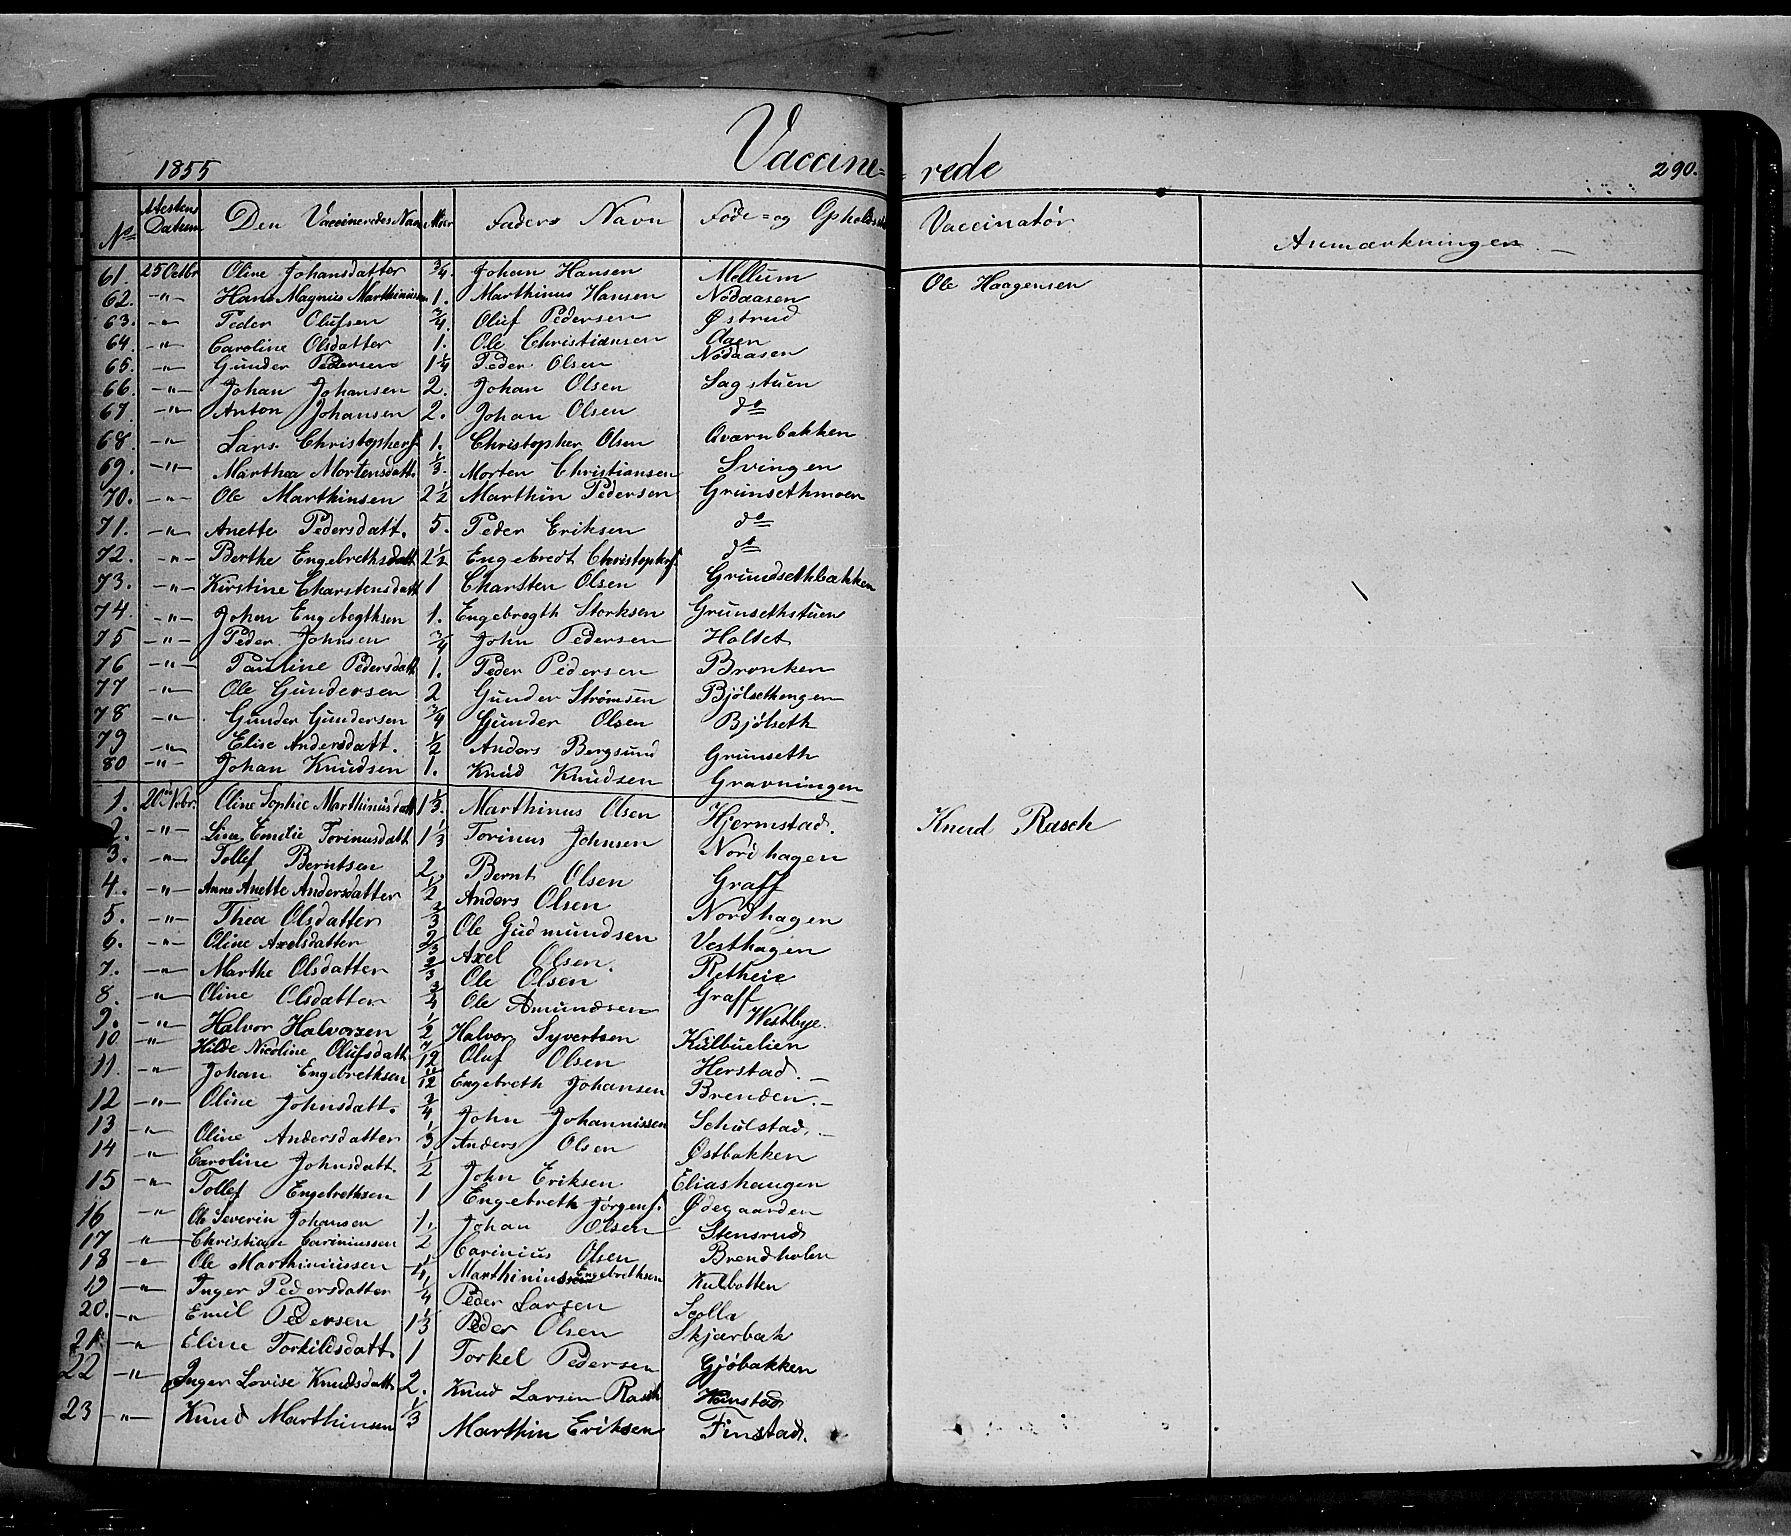 1855 Vaccine= =rede 290.
No Attestens Datum Den Vaccineredes Navn Alder Faders Navn Føde= og Opholds Vaccinatør Anmærkninger
61. 25 Octbr Oline Johansdatter 3/4. Johan Hansen Mellum Ole Haagensen
62. -"- Hans Magnus Marthinusen 1. Marthinus Hansen Nødaasen
63. -"- Peder Olufsen 3/4 Oluf Pedersen Østrud
64. -"- Caroline Olsdatter 1. Ole Christiansen Aaen
65. -"- Gunder Pedersen 1 1/4 Peder Olsen Nødaasen
66. -"- Johan Johansen 2. Johan Olsen Sagstuen
67. -"- Anton Johansen 2. Johan Olsen do
68. -"- Lars Christophers 1. Christopher Olsen Qværnbakken
69. -"- Marthea Mortensdatt. 1/3. Morten Christiansen Svingen
70. -"- Ole Marthinsen 2 1/2 Marthin Pedersen Grünsethmoen
71. -"- Anette Pedersdatt. 5. Peder Eriksen do
72. -"- Berthe Engebrethsdatt 2 1/2 Engebredt Christophers do
73. -"- Kirstine Charstensdatt 1 Charsten Olsen Grundsethbakken
74. -"- Johan Engebregthsen 1. Engebregth Storksen Grünsethstuen
75 -"- Peder Johnsen 3/4 John Pedersen Holtet
76 -"- Pauline Pedersdatt 1. Peder Pedersen Bronken
77 -"- Ole Gundersen 2 Gunder Strømsen Bjølsethengen
78 -"- Gunder Gundersen 3/4 Gunder Olsen Bjølseth
79 -"- Elise Andersdatt. 1/2 Anders Bergsund Grünseth
80 -"- Johan Knudsen 1. Knud Knudsen Gravningen
1. 20 Nvbr. Oline Sophie Marthinusdatt 1 1/3. Marthinus Olsen Hjermstad. Knud Rasch
2. -"- Lina Emilie Torinusdatt 1 1/3 Torinus Johnsen Nordhagen
3. -"- Tollef Berntsen 2. Bernt Olsen Graff
4. -"- Anne Anette Andersdatter 1/2 Anders Olsen Nordhagen
5. -"- Thea Olsdatter 2/3 Ole Gudmundsen Vesthagen
6. -"- Oline Axelsdatter 2/3 Axel Olsen. Retheie
7. -"- Marthe Olsdatter 2/3 Ole Olsen Graff
8. -"- Oline Olsdatter 3/4 Ole Amundsen Westbye.
9. -"- Halvor Halvorsen 1/2 Halvor Syvertsen Külbuelien
10 -"- Hilde Nicoline Olufsdatt 7/12 Oluf Olsen Herstad.
11. -"- Johan Engebrethsen 11/12 Engebreth Johansen Brenden.
12 -"- Oline Johnsdatt. 3/4 John Johannissen Schülstad.
13 -"- Oline Andersdatter 1/3 Anders Olsen Østbakken
14 -"- Caroline Johnsdatt. 1/2 John Eriksen Eliashaugen
15 -"- Tollef Engebrethsen 1 Engebreth Jörgens. Ødegaarden
16 -"- Ole Severin Johansen 1. Johan Olsen Stensrud
17 -"- Christian Cariniussen 1/2 Carinius Olsen Brendholen
18 -"- Ole Marthiniussen 1/4 Marthinius Engebrethsen Kulbotten
19 -"- Inger Pedersdatter 1/4 Peder Larsen Scolla
20. -"- Emil Pedersen 1 1/3 Peder Olsen Skjærbæk
21. -"- Eline Torkildsdatt. 1 Torkel Pedersen Gjøbakken
22 -"- Inger Lovise Knudsdatt 2. Knud Larsen Rasch
23 -"- Knud Marthinsen 1/3 Marthin Eriksen Finstad.